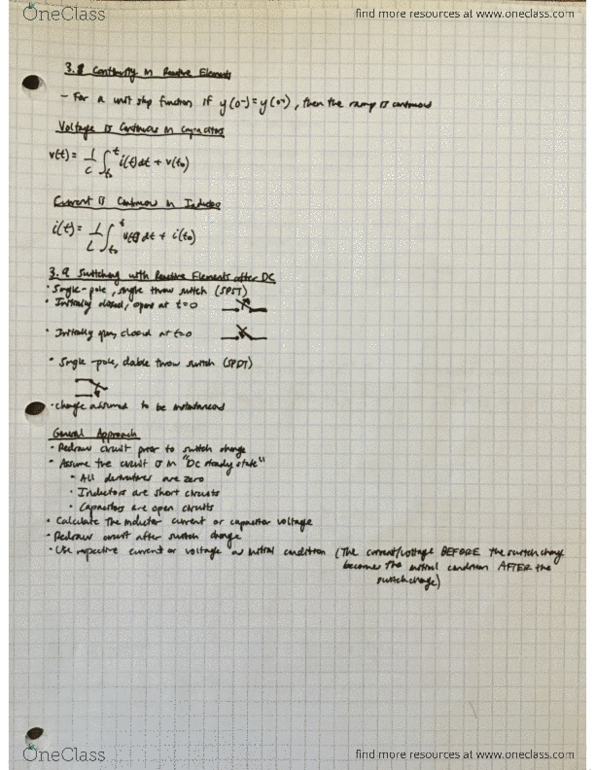 OneClass
find more resources at www.oneclass.com
3.8 Continuity in Reactive Elements
- For a unit step function if y(0-)=y(0+), then the ramp is continuous
Voltage is Continuous in Capacitors
v(t) = 1/C ∫_{t₀}^{t} i(t)dt + v(t₀)
Current is Continuous in Inductor
i(t) = 1/L ∫_{t₀}^{t} v(t) dt + i(t₀)
3.9 Switching with Reactive Elements after DC
• Single-pole, single throw switch (SPST)
• Initially closed, opens at t=0
• Initially open, closed at t=0
• Single-pole, double throw switch (SPDT)
• change assumed to be instantaneous
General Approach
• Redraw circuit prior to switch change
• Assume the circuit is in "DC steady state"
• All derivatives are zero
• Inductors are short circuits
• Capacitors are open circuits
• Calculate the inductor current or capacitor voltage
• Redraw circuit after switch change
• Use respective current or voltage as initial condition (The current/voltage BEFORE the switch change
becomes the initial condition AFTER the
switch change)
OneClass
find more resources at www.oneclass.com